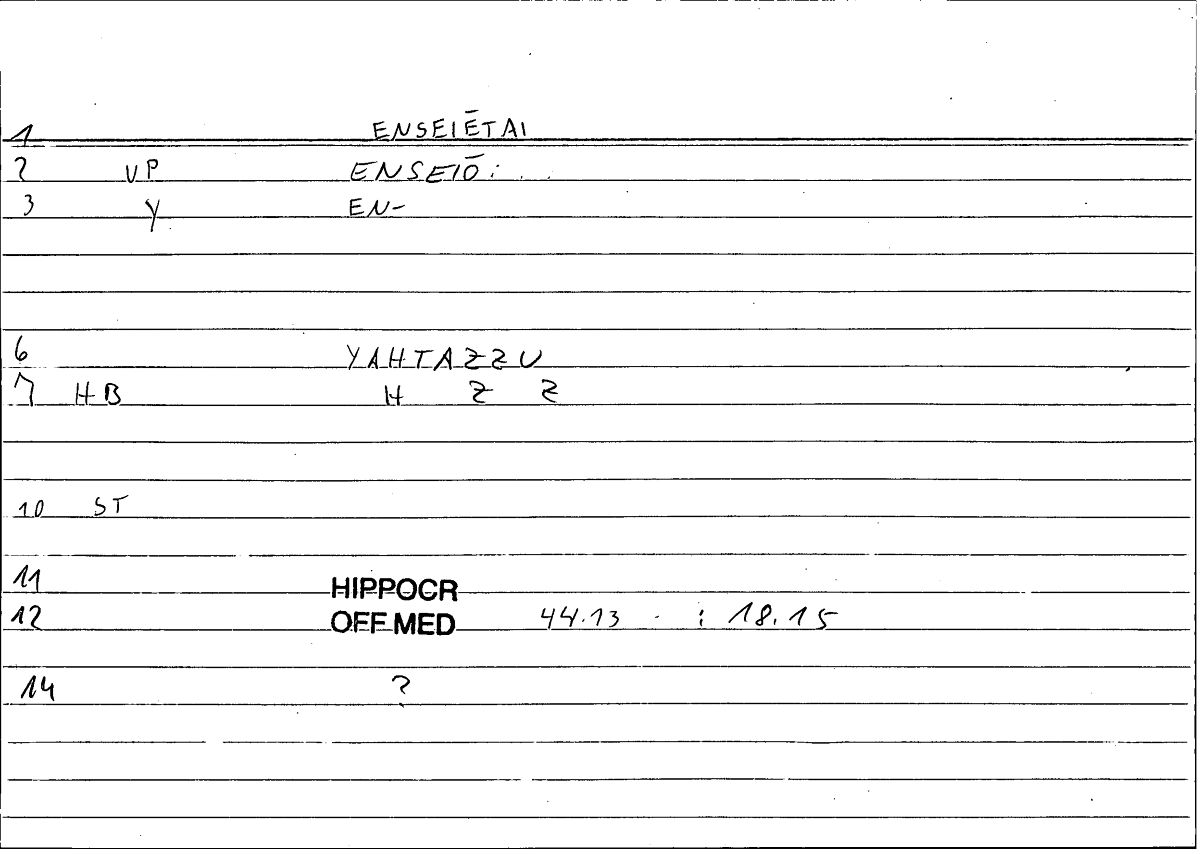 1 ENSEIĒTAI
2 VP ENSEIŌ: . .
3 Y EN-
6 YAHTAZZU
7 HB H Z Z
10 ST
11 HIPPOCR
12 OFF MED 44.13 - : 18.15
14 ?